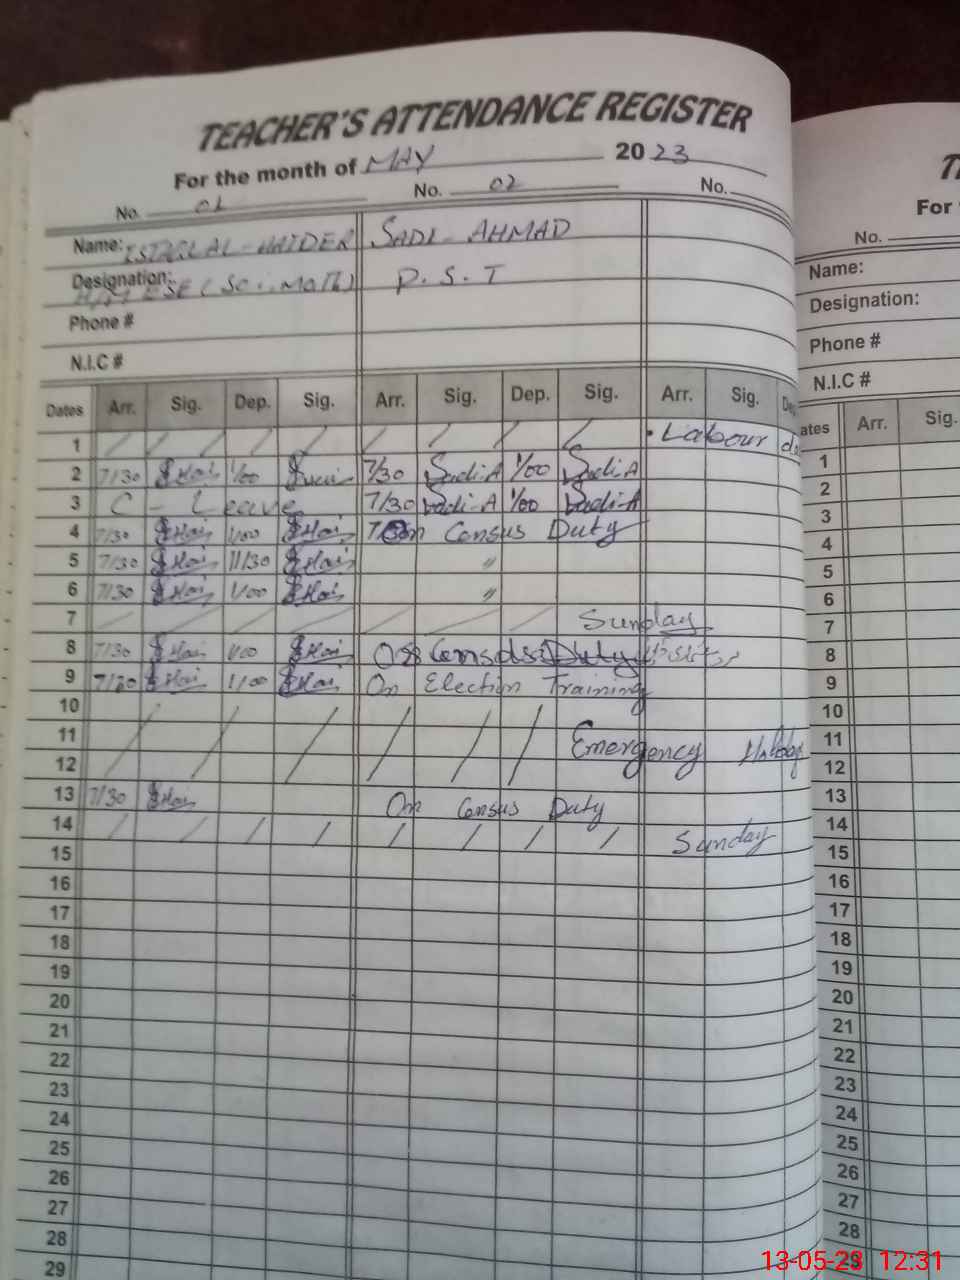 TEACHER'S ATTENDANCE REGISTER
For the month of MAY 2023
No. 01 No. 02 No.
Name: HAIDER SADI-AHMAD
Designation: H/M ESE (Sc.-Math) P.S.T
Phone #
N.I.C #
Dates Arr. Sig. Dep. Sig. Arr. Sig. Dep. Sig. Arr. Sig. Dep
1 / / / / / / / / Labour
2 7/30 1/00 7/30 Sadi-A 1/00 Sadi-A
3 C - Leave 7/30 Sadi-A 1/00 Sadi-A
4 7/30 1/00 On Census Duty
5 7/30 11/30 "
6 7/30 1/00 "
7 / / / / / / / / Sunday
8 7/30 1/00 Duty
9 7/30 1/00 On Election Training
10
11 / / / / / / Emergency Holiday
12
13 7/30 On Census Duty
14 / / / / / / / / Sunday
15
16
17
18
19
20
21
22
23
24
25
26
27
28
29
For
No.
Name:
Designation:
Phone #
N.I.C #
ates Arr. Sig.
1
2
3
4
5
6
7
8
9
10
11
12
13
14
15
16
17
18
19
20
21
22
23
24
25
26
27
28
13-05-23 12:31